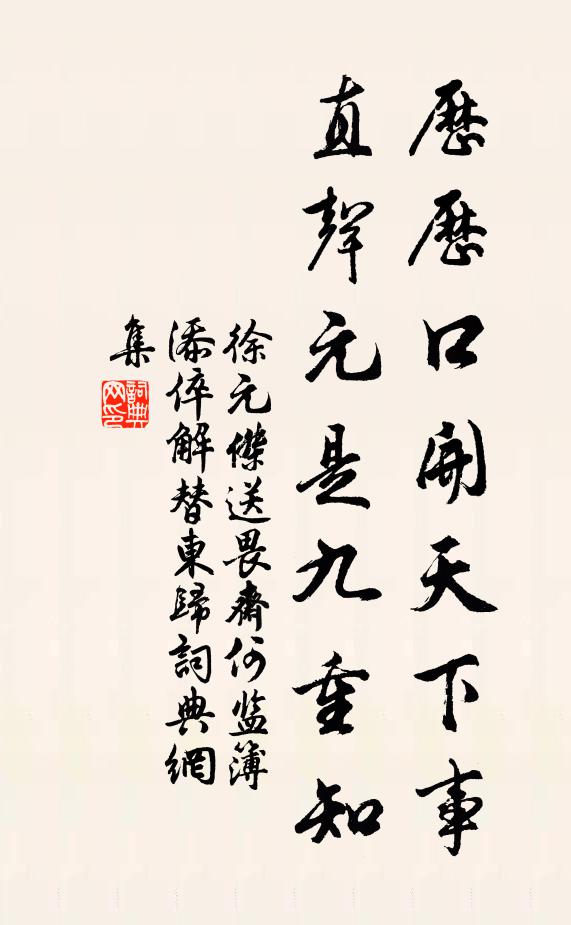 歷歷口開天下事
直聲元是九重知
徐元傑送畏齋何监簿
添倅解替東歸詞典網
集
詞典
网印